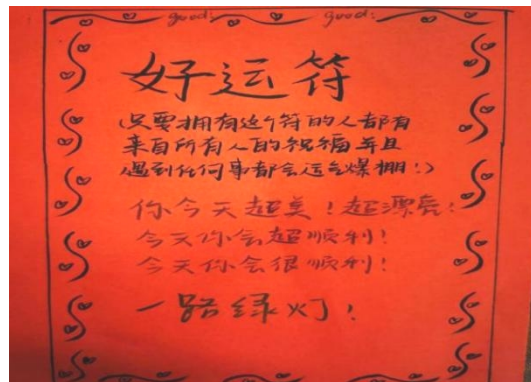 good: good:
好运符
(只要拥有这个符的人都有
来自所有人的祝福并且
遇到任何事都会运气爆棚!)
你今天超美!超漂亮!
今天你会超顺利!
今天你会很顺利!
一路绿灯!